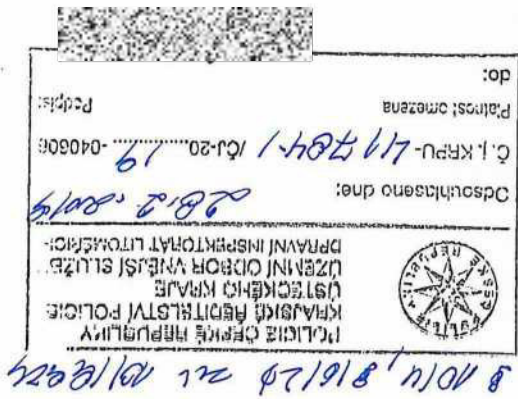 § 10/4, § 16/2d
POLICIE ČESKÉ REPUBLIKY
KRAJSKÉ ŘEDITELSTVÍ POLICIE
ÚSTECKÉHO KRAJE
ÚZEMNÍ ODBOR VNĚJŠÍ SLUŽB
DPRAVNÍ INSPEKTORÁT LITOMĚŘICI-
Odsouhlaseno dne: 28.2.2019
Č.j. KRPU- 41784-1 /ČJ-20..19..-040606
Platnost omezena Podpis:
do: